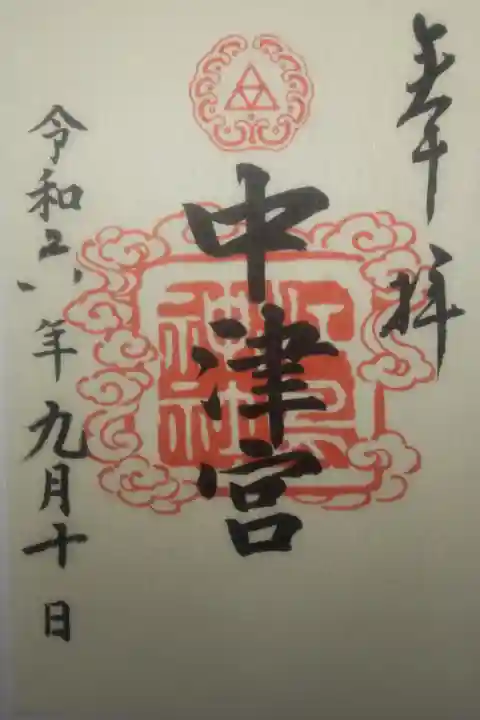 奉拝
中津宮
神社
令和六年九月十日